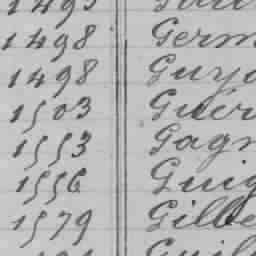 1498 Germ
1498 Guyo
1503 Guer
1553 Gagn
1556 Guig
1579 Gilbe